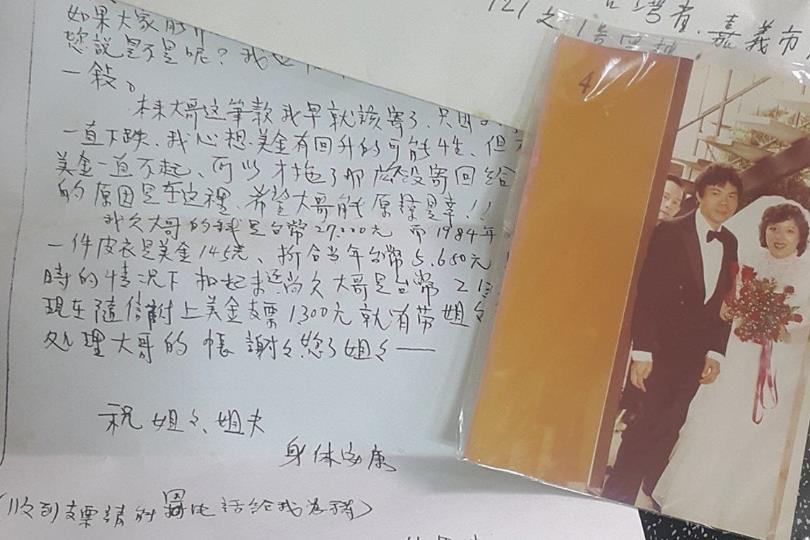 台灣省.嘉義市
121之1号
如果大家
您說是不是呢?我也
一銭。
本来大哥这筆款我早就該寄了、只因
一直下跌、我心想美金有回升的可能性、但
美金一直不起、所以才拖了那麽久没寄回給
的原因是在这裡、希望大哥能原諒是幸!!
我欠大哥的錢是台幣27.200元 而1984年
一件皮衣是美金145元、折合当年台幣5.650元
時的情况下扣起来还尚欠大哥是台幣21
現在隨信附上美金支票1300元就有劳姐々
处理大哥的帳謝々您了姐々——
祝姐々、姐夫
身体安康
(收到支票請附 电话給我为禱)
4